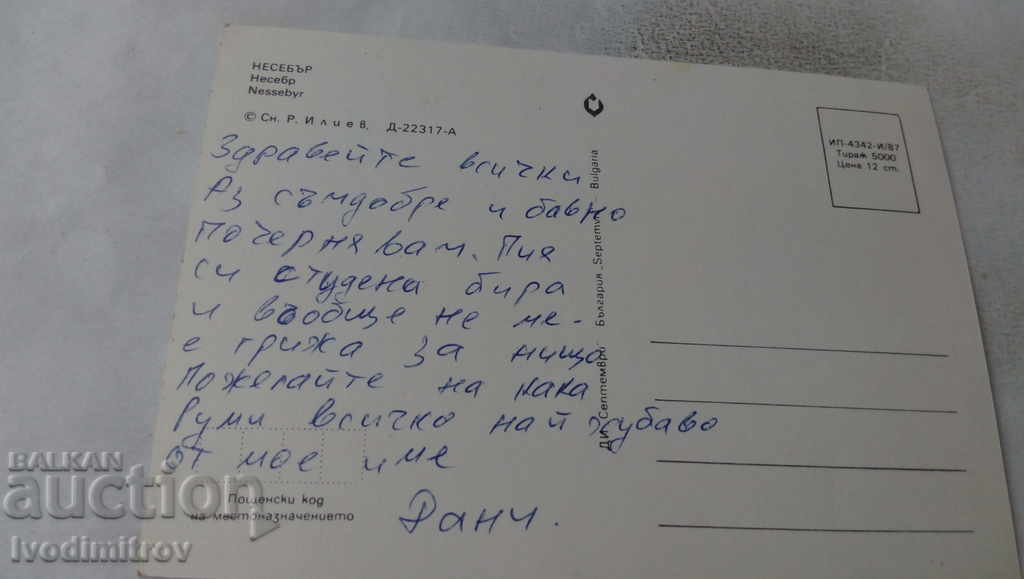 НЕСЕБЪР
Несебр
Nessebyr
© Сн. Р. Илиев, Д-22317-А
ИП-4342-И/87
Тираж 5000
Цена 12 ст.
Здравейте всички
Аз съмдобре и бавно
почернявам. Пия
си студена бира
и въобще не ме-
е грижа за нищо
Пожелайте на кака
Руми всичко най хубаво
от мое име
Дани.
ДИ „Септември" България „Septemvri" Bulgaria
Пощенски код
на местоназначението
BALKAN
auction
Ivodimitrov